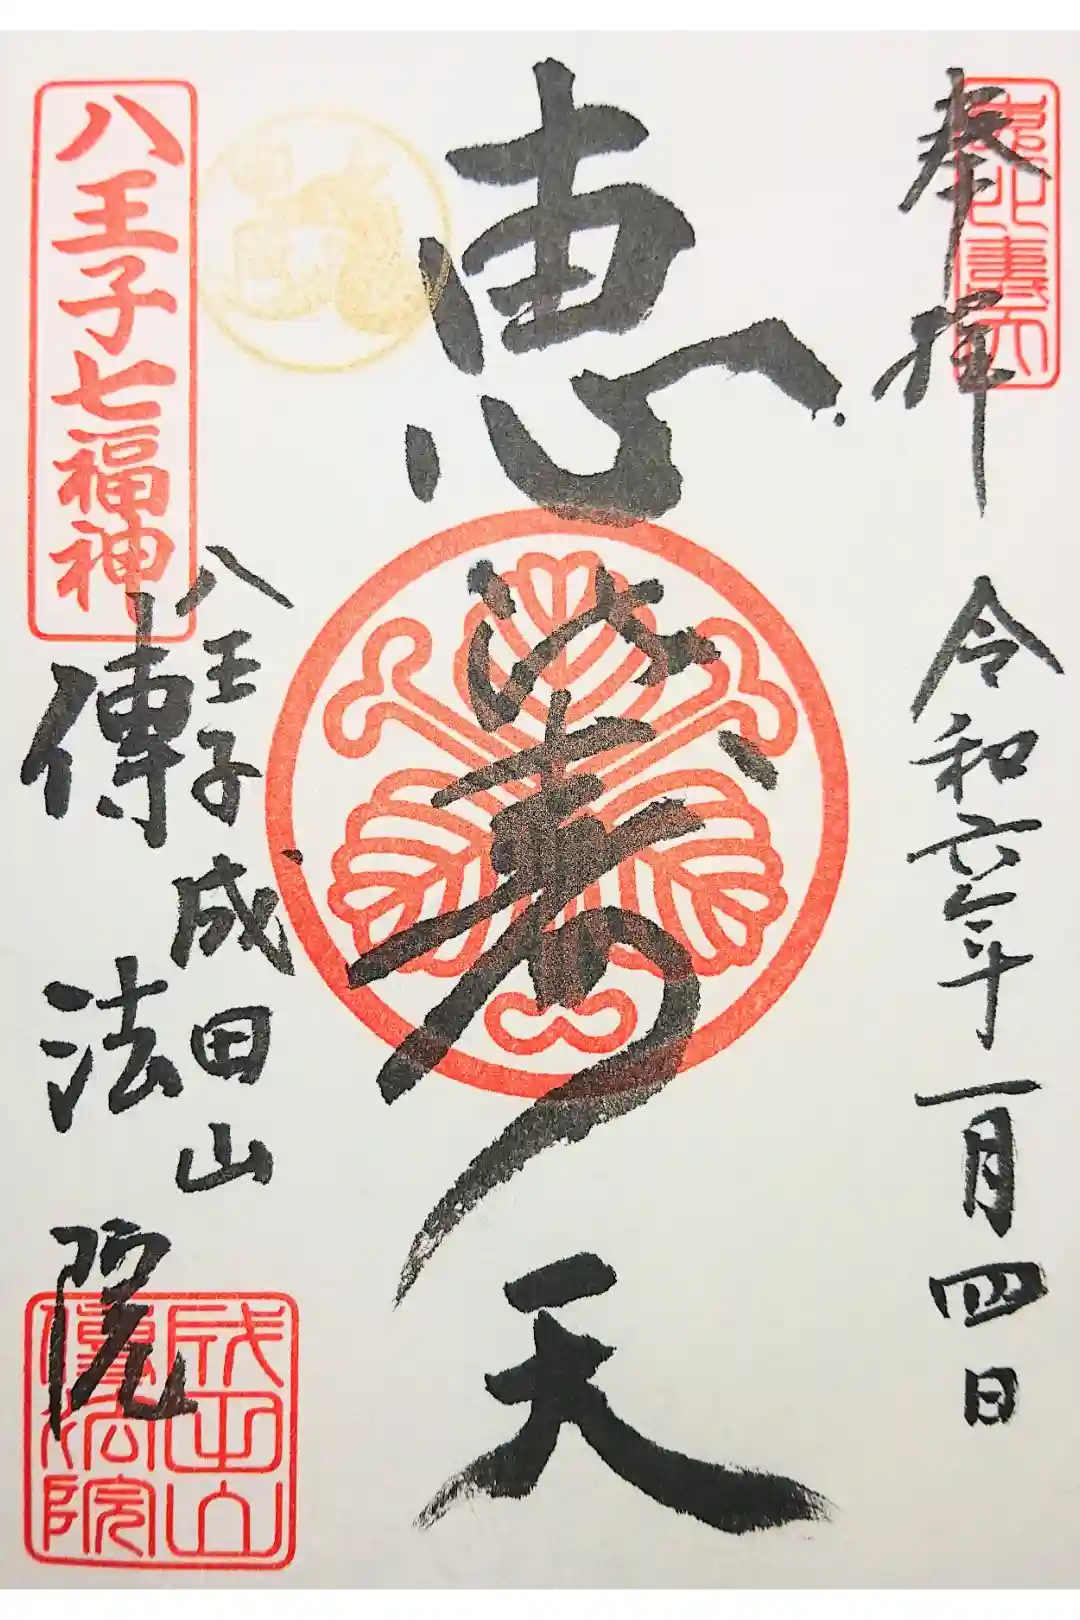 奉拝
令和六年一月四日
恵比寿天
八王子七福神
八王子成田山
傳法院
成田山
傳法院